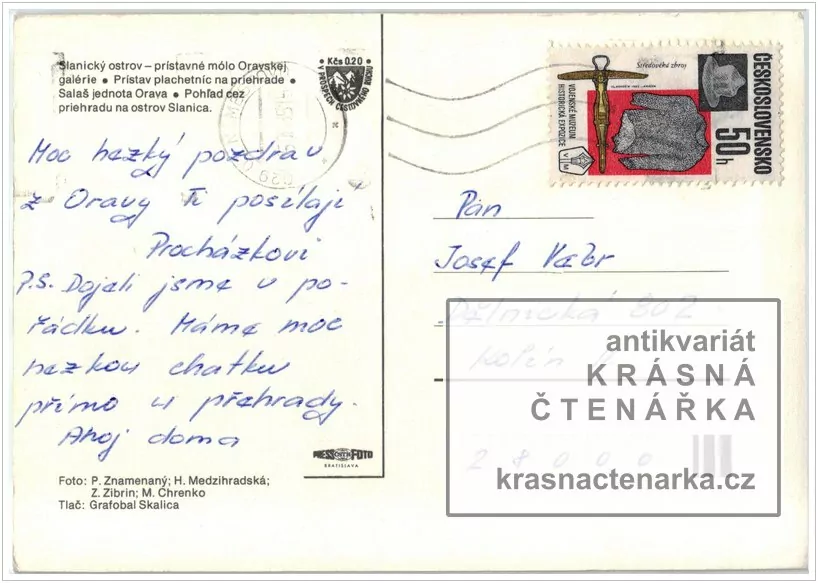 Slanický ostrov – prístavné mólo Oravskej
galérie • Prístav plachetníc na priehrade •
Salaš jednota Orava • Pohľad cez
priehradu na ostrov Slanica.
Kčs 0.20
V PROSPECH CESTOVNÉHO RUCHU
Moc hezký pozdrav
z Oravy Ti posílají
Procházkovi
P.S. Dojeli jsme v po-
řádku. Máme moc
hezkou chatku
přímo u přehrady.
Ahoj doma
PRESSFOTO
BRATISLAVA
Foto: P. Znamenaný; H. Medzihradská;
Z. Zibrin; M. Chrenko
Tlač: Grafobal Skalica
Středověké zbroj
VOJENSKÉ MUZEUM
HISTORICKÁ EXPOZICE
V M
ČESKOSLOVENSKO
50h
Pán
Josef Vebr
Dělnická 802
Kolín
28000
antikvariát
KRÁSNÁ
ČTENÁŘKA
krasnactenarka.cz